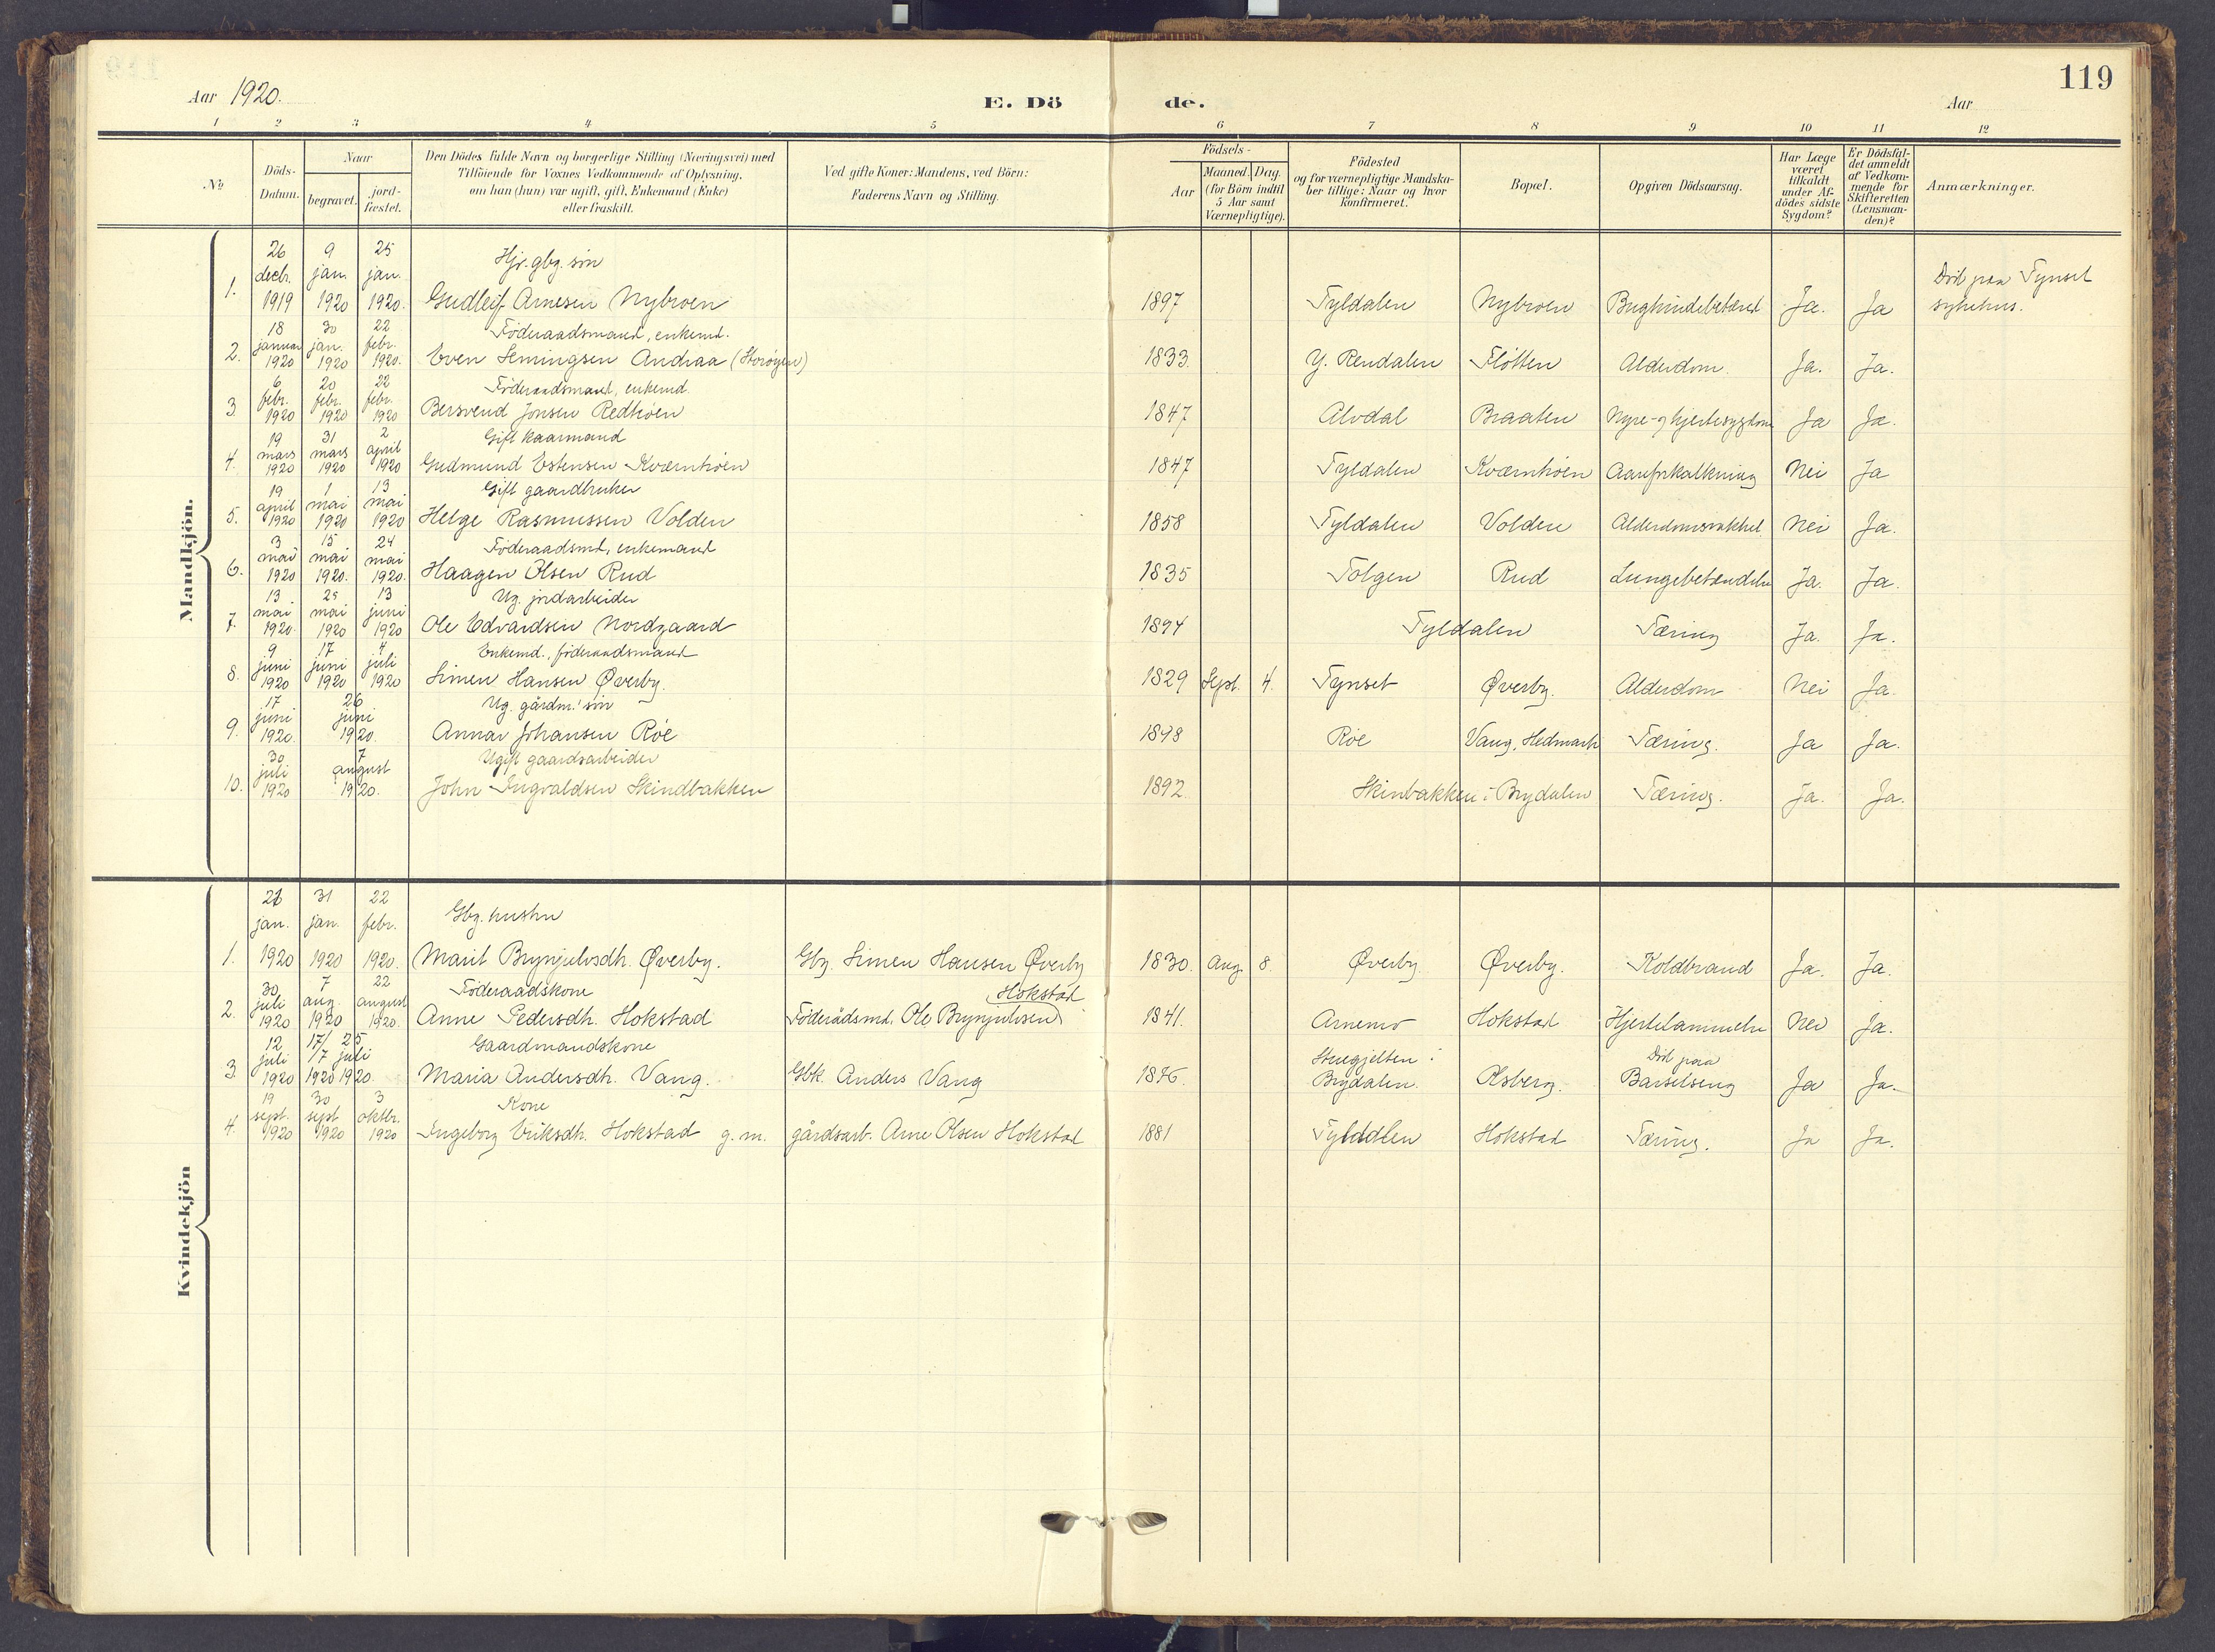 119
Aar 1920.
E. Dö de.
Aar
1 2 3 4 5 6 7 8 9 10 11 12
No
Döds-Datum.
Naar
begravet.
jord-fæstet.
Den Dödes fulde Navn og borgerlige Stilling (Næringsvei) med
Tilföiende for Voxnes Vedkommende af Oplysning,
om han (hun) var ugift, gift, Enkemand (Enke)
eller fraskilt.
Ved gifte Koner: Mandens, ved Börn:
Faderens Navn og Stilling.
Födsels-
Aar
Maaned. Dag.
(for Börn indtil
5 Aar samt
Værnepligtige).
Födested
og for værnepligtige Mandska-
ber tillige: Naar og hvor
konfirmeret.
Bopæl.
Opgiven Dödsaarsag.
Har Læge
været
tilkaldt
under Af-
dödes sidste
Sygdom?
Er Dödsfal-
det anmeldt
af Vedkom-
mende for
Skifteretten
(Lensman-
den)?
Anmærkninger.
Mandkjön.
26 9 25 Hjr. gbg. sön
decbr. jan. jan. Död paa Tynset
1. 1919 1920 1920. Gudleif Arnesen Nybroen 1897 Tyldalen Nybroen Ja. Ja sykehus.
18 30 22 Föderaadsmand, enkemd.
januar jan. febr.
2. 1920 1920 1920. Even Semingsen Andraa (Storöyen) 1833. Y. Rendalen Flötten Alderdom. Ja. Ja.
6 20 22 Föderaadsmand, enkemd.
febr. febr. febr.
3. 1920 1920 1920 Bersvend Jonsen Rödhoen 1847 Alvdal Braaten Nyre- og hjertesygdom Ja Ja.
19 31 2 Gift kaarmand
mars mars april
4. 1920 1920 1920 Gudmund Estensen Kværnhöen 1847 Tyldalen Kværnhöen Aareforkalkning Nei Ja
19 1 13 Gift gaardbruker
april mai mai
5. 1920 1920 1920 Helge Rasmussen Volden 1858 Tyldalen Volden Alderdomssvakhet Nei Ja.
3 15 24 Föderaadsmd., enkemand
mai mai mai
6. 1920 1920. 1920. Haagen Olsen Rud 1835 Tolgen Rud Lungebetændelse Ja. Ja.
13 25 13 Ug. jordarbeider
mai mai juni
7. 1920. 1920 1920 Ole Edvardsen Nordgaard 1894 Tyldalen Tæring Ja. Ja.
9 17 4 Enkemd., föderaadsmand
juni juni juli
8. 1920 1920 1920 Simen Hansen Øverby. 1829 Sept. 4. Tynset Øverby. Alderdom Nei Ja.
17 26 Ug. gårdm. sön
juni juni
9. 1920. 1920. Annar Johansen Röe 1898 Röe Vang, Hedmark Tæring. Ja Ja.
30 7 Ugift gaardsarbeider
juli august
10. 1920 1920. John Ingvaldsen Skindbakken 1892. Skinbakken i Brydalen Tæring. Ja. Ja.
Kvindekjön
21 31 22
jan. jan. febr. Gbg. hustru
1. 1920 1920 1920. Marit Brynjulvsdh. Øverby. Gbg. Simen Hansen Øverby 1830. Aug. 8. Øverby Øverby. Koldbrand Ja. Ja.
30 7 22 Föderaadskone Hokstad
juli aug. august
2. 1920 1920 1920. Anne Pedersdh. Hokstad Föderådsmd. Ole Brynjulvsen 1841. Arnemo Hokstad Hjertelammelse Nei Ja.
12 17/7 25 Gaardmandskone
juli juli Död paa
3. 1920 1920 1920. Maria Andersdh. Vang. Gbk. Anders Vang Brydalen. Olsberg. Barselseng Ja Ja.
19 30 3 Kone
sept. sept. oktbr.
4. 1920 1920 1920 Ingeborg Eriksdh. Hokstad g. m. gårdsarb. Arne Olsen Hokstad 1881 Tylddlen Hokstad Tæring. Ja Ja.